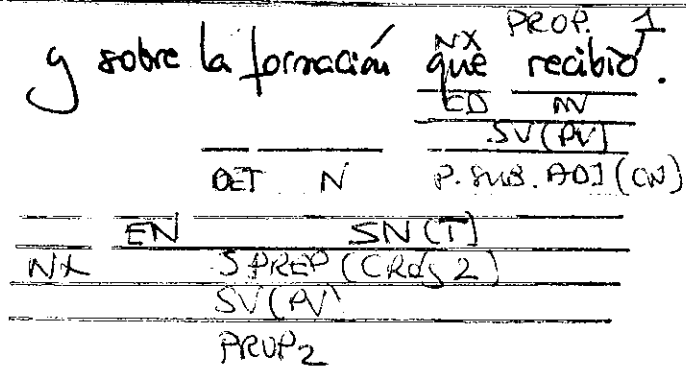 NX PROP. 1
y sobre la formación que recibió.
CD NV
SV (PV)
DET N P. SUB. ADJ (CN)
EN SN (T)
NX S PREP (CReg 2)
SV (PV)
PROP2